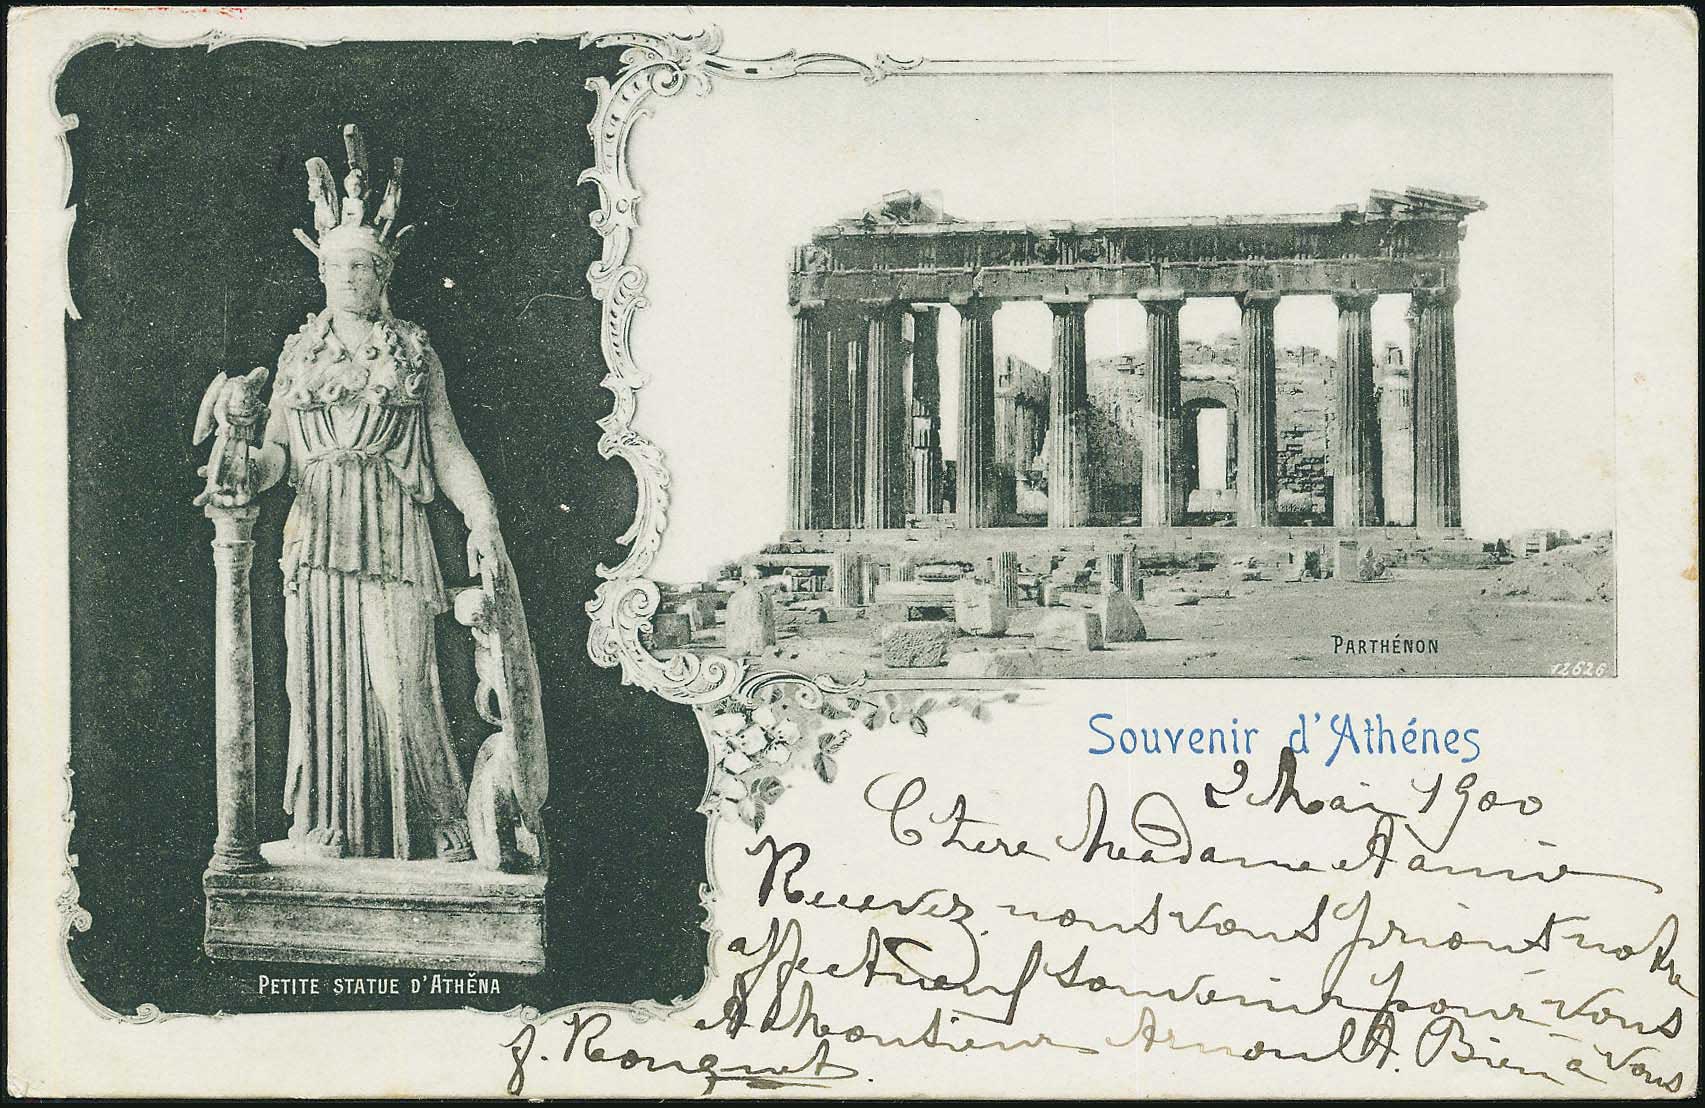 PARTHÉNON
12626
Souvenir d'Athénes
2 Mai 1900
Chere Madame et amie
Recevez nous vous prions notre
affectueux souvenir pour vous
et Monsieur Arnoult. Bien à vous
PETITE STATUE D'ATHĚNA
J. Rouquet.